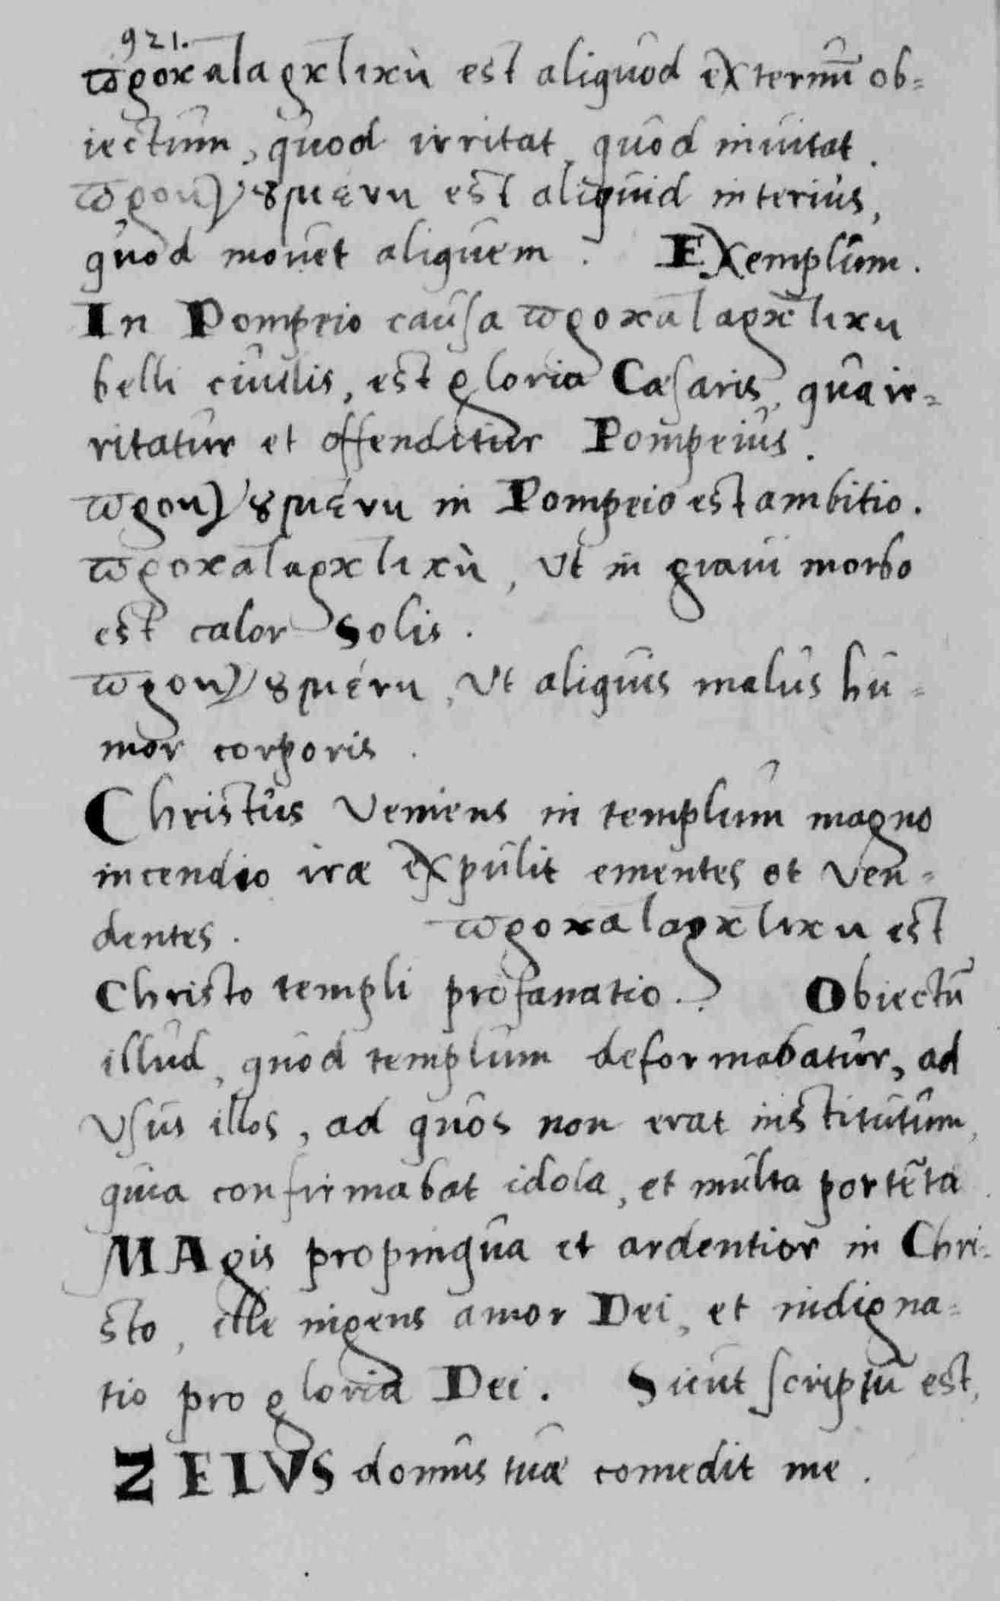 921.
προκαταρκτικὴ est aliquod externũ ob-
iectum, quod irritat, quod inuitat.
προηγουμένη est aliquid interius,
quod mouet aliquem. EXemplum.
In Pompeio causa προκαταρκτικη
belli ciuilis, est gloria Cæsaris, qua ir-
ritatur et offenditur Pompeius.
προηγουμένη in Pompeio est ambitio.
προκαταρκτικὴ, Vt in graui morbo
est calor Solis.
προηγουμένη, Vt aliquis malus hu-
mor corporis.
Christus Veniens in templum magno
incendio iræ expulit ementes et Ven-
dentes. προκαταρκτικη est
Christo templi profanatio. Obiectũ
illud, quod templum deformabatur, ad
Vsus illos, ad quos non erat institutum,
quia confirmabat idola, et multa portẽta.
MAgis propinqua et ardentior in Chri-
sto, ille ingens amor Dei, et indigna-
tio pro gloria Dei. Sicut scriptũ est,
ZELVS domus tuæ comedit me.